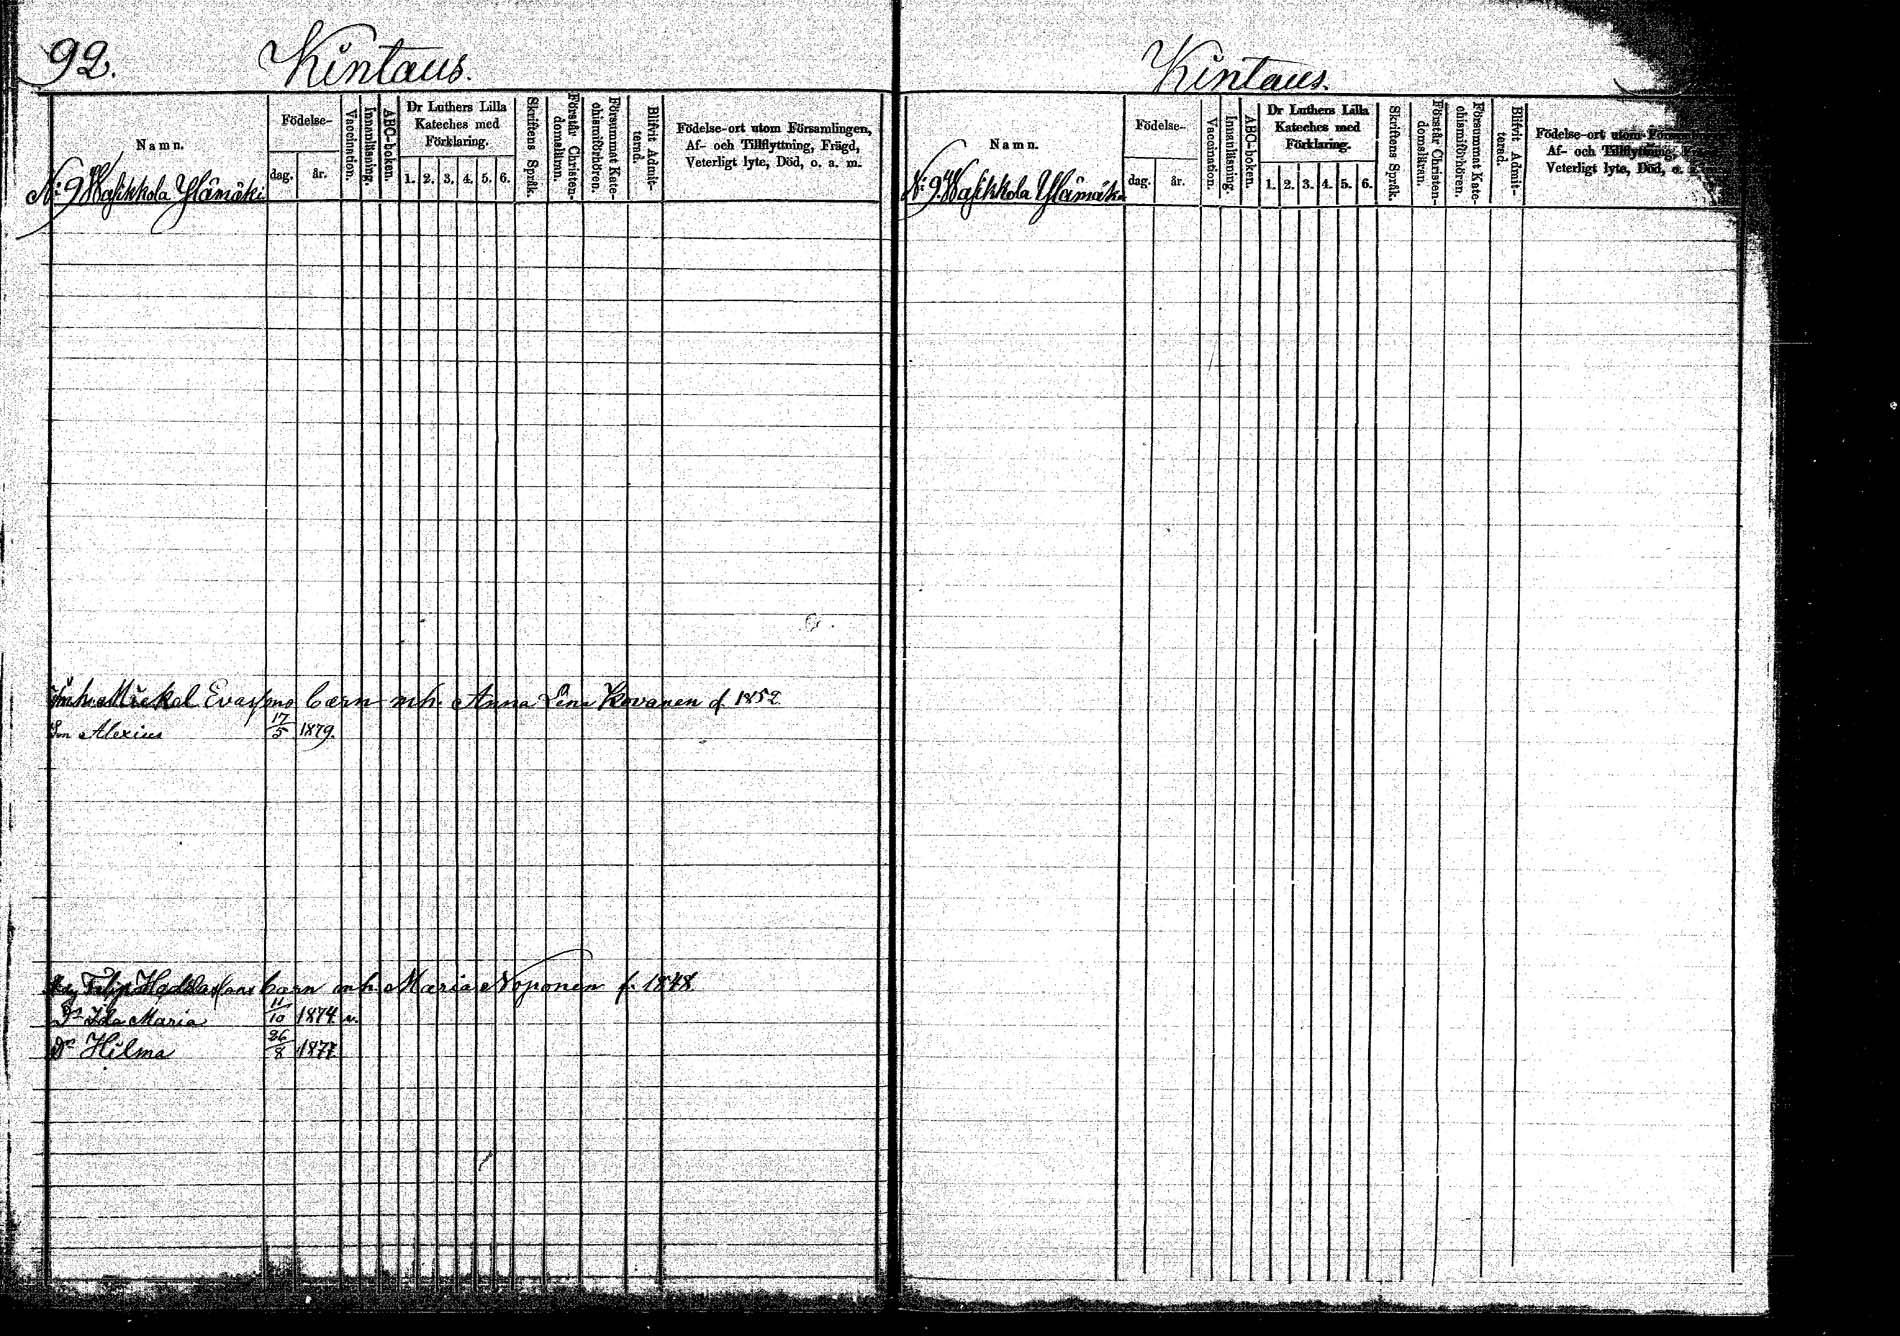 92.
Kintaus.
Namn.
Födelse-
dag.
år.
Vaccination.
Innanläsning.
ABC-boken.
Dr Luthers Lilla
Kateches med
Förklaring.
1. 2. 3. 4. 5. 6.
Skriftens Språk.
Förstår Christen-
domslärnn.
Försummat Kate-
chismiförhören.
Blifvit Admit-
terad.
Födelse-ort utom Församlingen,
Af- och Tillflyttning, Frägd,
Veterligt lyte, Död, o. a. m.
N: 9 Wasikkola Ylämäki
Mickel barn mh. Anna Lena Kovanen f. 1852
Sn Alexius 17/5 1879.
Filip barn mh. Maria Noponen f. 1848
Dr Ida Maria 11/10 1874 v.
Dr Hilma 26/8 1877
Kintaus.
Namn.
Födelse-
dag.
år.
Vaccination.
Innanläsning.
ABC-boken.
Dr Luthers Lilla
Kateches med
Förklaring.
1. 2. 3. 4. 5. 6.
Skriftens Språk.
Förstår Christen-
domsläran.
Försummat Kate-
chismiförhören.
Blifvit Admit-
terad.
Födelse-ort utom
Af- och Tillflyttning,
Veterligt lyte, Död, o.
N: 9. Wasikkola Ylämäki